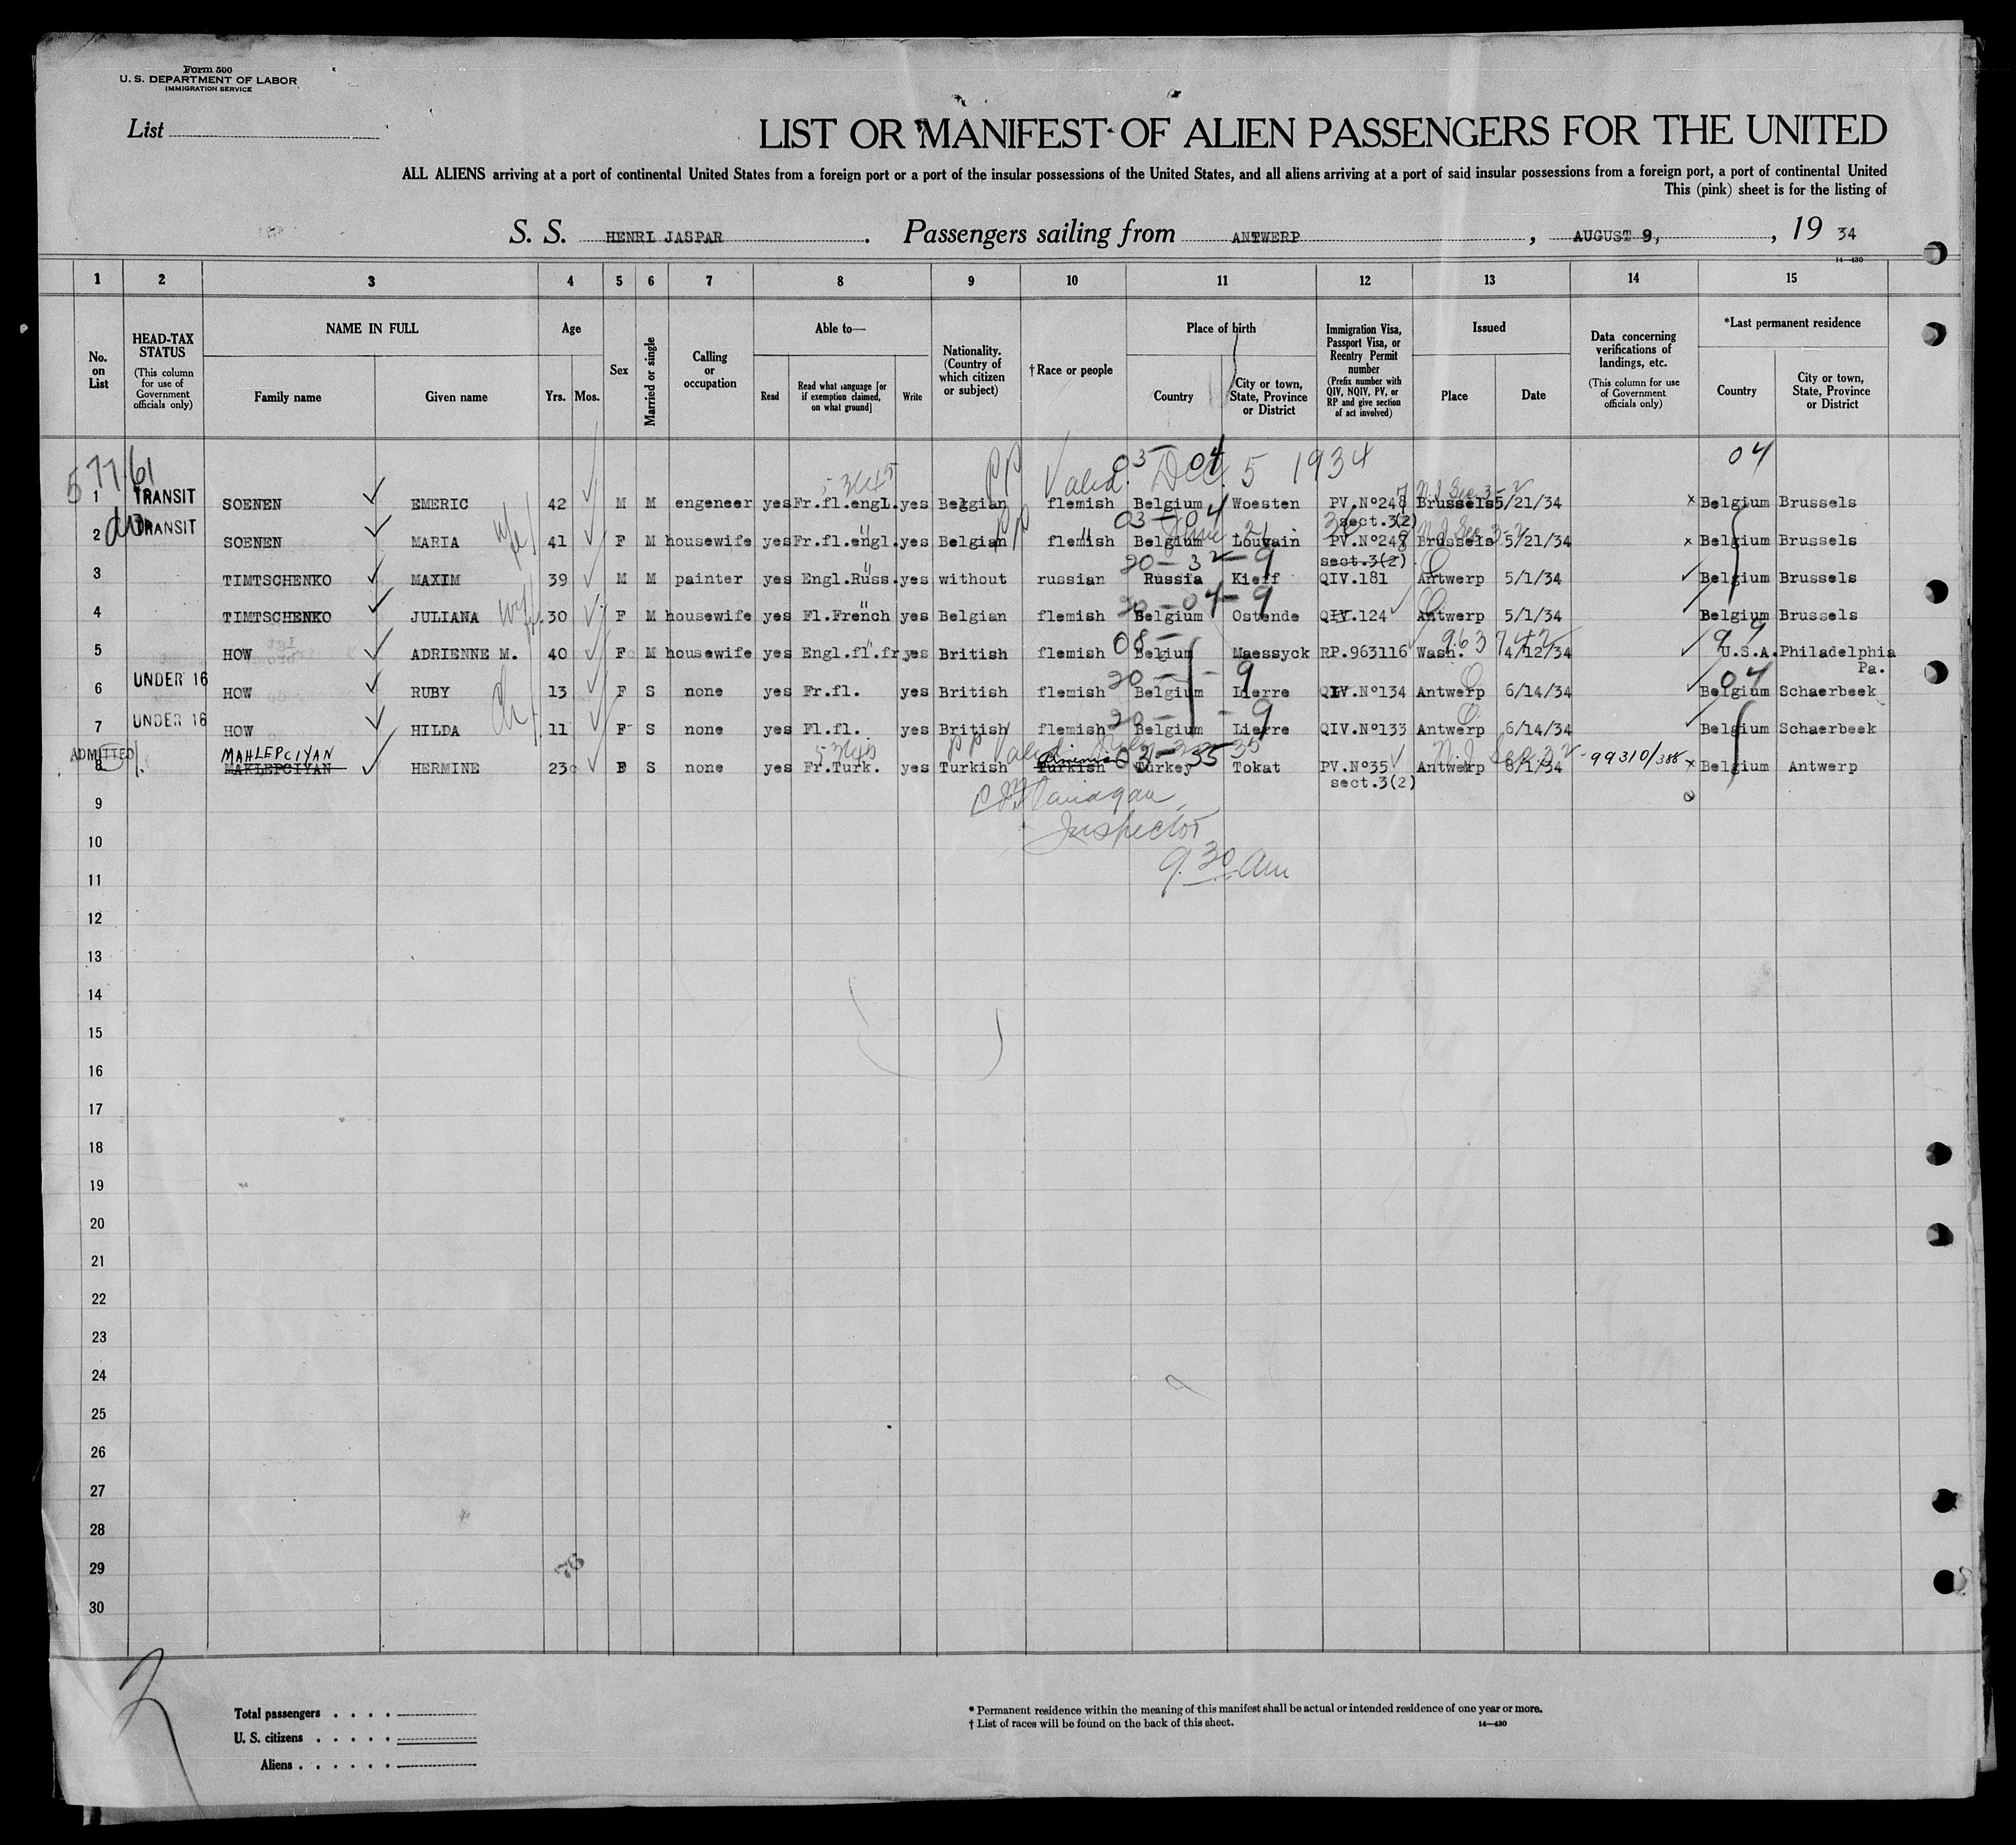 Form 500
U. S. DEPARTMENT OF LABOR
IMMIGRATION SERVICE
List
LIST OR MANIFEST OF ALIEN PASSENGERS FOR THE UNITED
ALL ALIENS arriving at a port of continental United States from a foreign port or a port of the insular possessions of the United States, and all aliens arriving at a port of said insular possessions from a foreign port, a port of continental United
This (pink) sheet is for the listing of
S. S. HENRI JASPAR . Passengers sailing from ANTWERP , AUGUST 9, , 19 34
14—430
1 2 3 4 5 6 7 8 9 10 11 12 13 14 15
No. on List
HEAD-TAX STATUS
(This column for use of Government officials only)
NAME IN FULL
Family name Given name
Age
Yrs. Mos.
Sex
Married or single
Calling or occupation
Able to—
Read
Read what language [or if exemption claimed, on what ground]
Write
Nationality. (Country of which citizen or subject)
†Race or people
Place of birth
Country
City or town, State, Province or District
Immigration Visa, Passport Visa, or Reentry Permit number
(Prefix number with QIV, NQIV, PV, or RP and give section of act involved)
Issued
Place Date
Data concerning verifications of landings, etc.
(This column for use of Government officials only)
*Last permanent residence
Country
City or town, State, Province or District
577/61
PP Valid. Dec. 5 1934
03 — 04
04
53645
1 TRANSIT SOENEN EMERIC 42 M M engeneer yes Fr.fl.engl. yes Beggian flemish Belgium Woesten PV.Nº248 Brussels 5/21/34 x Belgium Brussels
sect.3(2)
do
03 — 04
2 TRANSIT SOENEN MARIA wife 41 F M housewife yes Fr.fl.engl. yes Belgian flemish Belgium Louvain PV.Nº247 Brussels 5/21/34 x Belgium Brussels
sect.3(2)
20 — 32 — 9
3 TIMTSCHENKO MAXIM 39 M M painter yes Engl.Russ. yes without russian Russia Kieff QIV.181 Antwerp 5/1/34 Belgium Brussels
20 — 04 — 9
4 TIMTSCHENKO JULIANA wife 30 F M housewife yes Fl.French yes Belgian flemish Belgium Ostende QIV.124 Antwerp 5/1/34 Belgium Brussels
08 —
963742
99
5 HOW ADRIENNE M. 40 F M housewife yes Engl.fl.fr. yes British flemish Belgium Maessyck RP.963116 Wash. 4/12/34 U.S.A. Philadelphia
Pa.
20 — 9
04
6 UNDER 16 HOW RUBY ch 13 F S none yes Fr.fl. yes British flemish Belgium Lierre QIV.Nº134 Antwerp 6/14/34 Belgium Schaerbeek
20 — 9
7 UNDER 16 HOW HILDA 11 F S none yes Fl.fl. yes British flemish Belgium Lierre QIV.Nº133 Antwerp 6/14/34 Belgium Schaerbeek
ADMITTED
MAHLEPCIYAN
53645
PP Valid
8 MAKLEPCIYAN HERMINE 23 F S none yes Fr.Turk. yes Turkish Turkish Turkey Tokat PV.Nº35 Antwerp 8/1/34 -99310/388 x Belgium Antwerp
sect.3(2)
9
Inspector
10
9.30 am
11
12
13
14
15
16
17
18
19
20
21
22
23
24
25
26
27
28
29
78
30
2
Total passengers
U. S. citizens
Aliens
* Permanent residence within the meaning of this manifest shall be actual or intended residence of one year or more.
† List of races will be found on the back of this sheet.
14—430